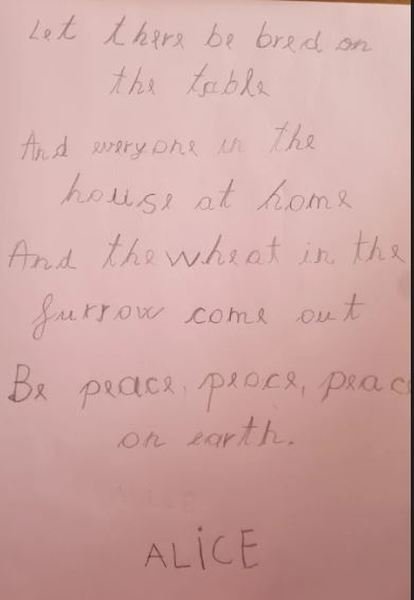 Let there be bred on
the table
And everyone in the
house at home
And the wheat in the
furrow come out
Be peace, peoce, peac
on earth.
ALiCE